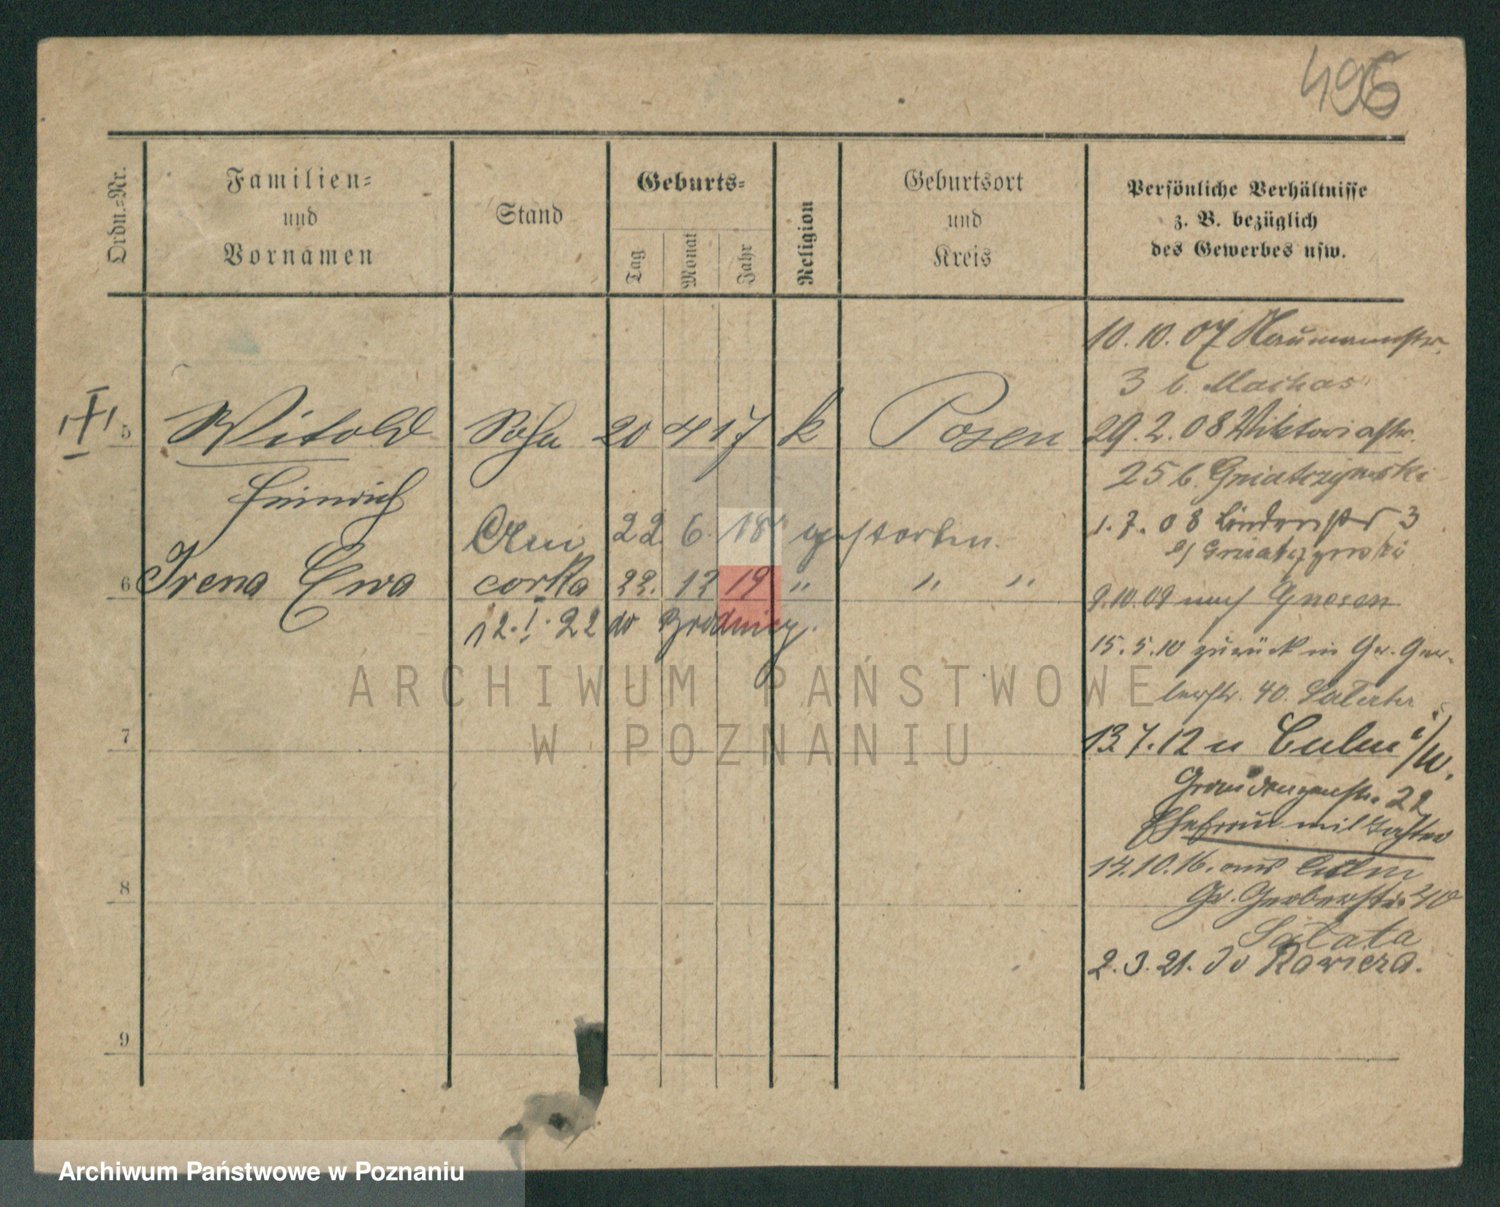 496
Ordn.=Nr.
Familien=
und
Vornamen
Stand
Geburts=
Tag
Monat
Jahr
Religion
Geburtsort
und
Kreis
Persönliche Verhältnisse
z. B. bezüglich
des Gewerbes usw.
10.10.07 Naumannstr.
3 b.
5 Witold Sohn 20 4 17 k Posen
29.2.08 Viktoriastr.
25 b. Gniatczynski
Heinrich
Am 22 6. 18 gestorben.
1.7.08 Lindenstr 3
b/ Gniatczynski
6 Irena Ewa corka 22. 12 19 " " "
9.10.09 nach Gnesen
12.I.22 do
15.5.10 zurück in Gr. Ger-
berstr. 40.
7
13.7.12 n Culm a/W.
Graudenzerstr. 22
Ehefrau mit Tochter
8
14.10.16. aus Culm
Gr. Gerberstr. 40
Salata
2.3.21. do Rawicza.
9
ARCHIWUM PAŃSTWOWE
W POZNANIU
Archiwum Państwowe w Poznaniu